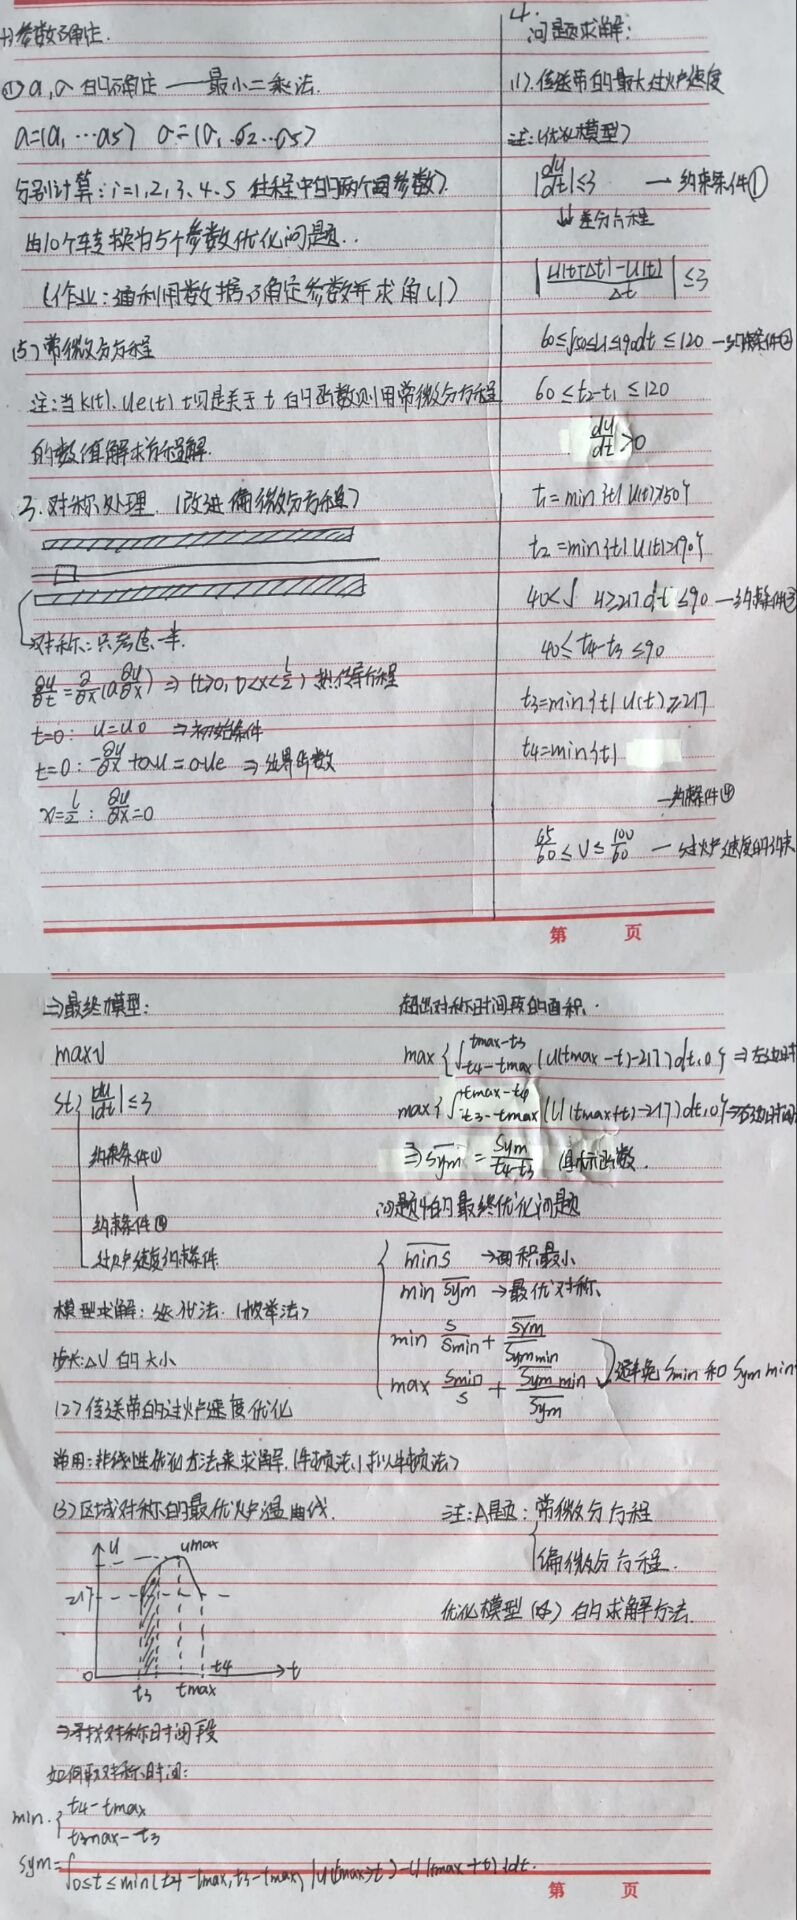 参数确定.
① a,σ的确定——最小二乘法.
a=(a₁ … a₅) σ=(σ₁ σ₂ … σ₅)
分别计算: i=1,2,3,4,5
由10个转换为5个参数优化问题..
(作业: 利用数据确定参数并求解u)
(5)常微分方程
注: 当k(t), Ue(t) 均是关于t的函数则用常微分方程
的数值解求方程解.
3. 对称处理. (改进偏微分方程)
对称: 只考虑一半.
∂u/∂t = ∂/∂x(a ∂u/∂x) ⇒ (t>0, 0<x<l/2) 热传导方程
t=0: u=u0 ⇒初始条件
t=0: -∂u/∂x+σu=σue ⇒边界
x=l/2: ∂u/∂x=0
4.
问题求解:
(1). 传送带的最大过炉速度
注: (优化模型)
|du/dt|≤3 — 约束条件①
⇓ 差分方程
|u(t+Δt)-u(t)/Δt| ≤3
60≤∫150≤u≤190dt≤120 —约束条件②
60≤t2-t1≤120
du/dt>0
t1=min{t|u(t)>150}
t2=min{t|u(t)>190}
40<∫ u≥217dt≤90 —约束条件③
40≤t4-t3≤90
t3=min{t|u(t)≥217
t4=min{t|
—约束条件④
65/60≤V≤100/60 — 过炉速度的约束
第 页
⇒最终模型:
maxV
st |du/dt|≤3
约束条件①
约束条件④
过炉速度约束条件
模型求解: 迭代法. (枚举法)
步长: ΔV的大小
(2)传送带的过炉速度优化
常用: 非线性优化方法来求解. (牛顿法、拟牛顿法)
(3)区域对称的最优炉温曲线.
u
umax
217
0 t3 tmax t4 t
⇒寻找对称时间段
如何取对称时间:
min. { t4-tmax
tmax-t3
sym=∫0≤t≤min(t4-tmax, t3-tmax) |u(tmax-t)-u(tmax+t)|dt.
超出对称时间段的面积.
max{∫_{t4-tmax}^{tmax-t3}(u(tmax-t)-217)dt,0} ⇒左边时
max{∫_{t3-tmax}^{tmax-t4}(u(tmax+t)-217)dt,0}⇒右边时间
⇒s̅y̅m̅ = sym/t4-t3 目标函数.
问题4的最终优化问题
min s →面积最小
min s̅y̅m̅ →最优对称
min s/smin + s̅y̅m̅/s̅y̅m̅min
max smin/s + s̅y̅m̅min/s̅y̅m̅
避免smin和symmin
注: A题: 常微分方程
偏微分方程.
优化模型 的求解方法.
第 页